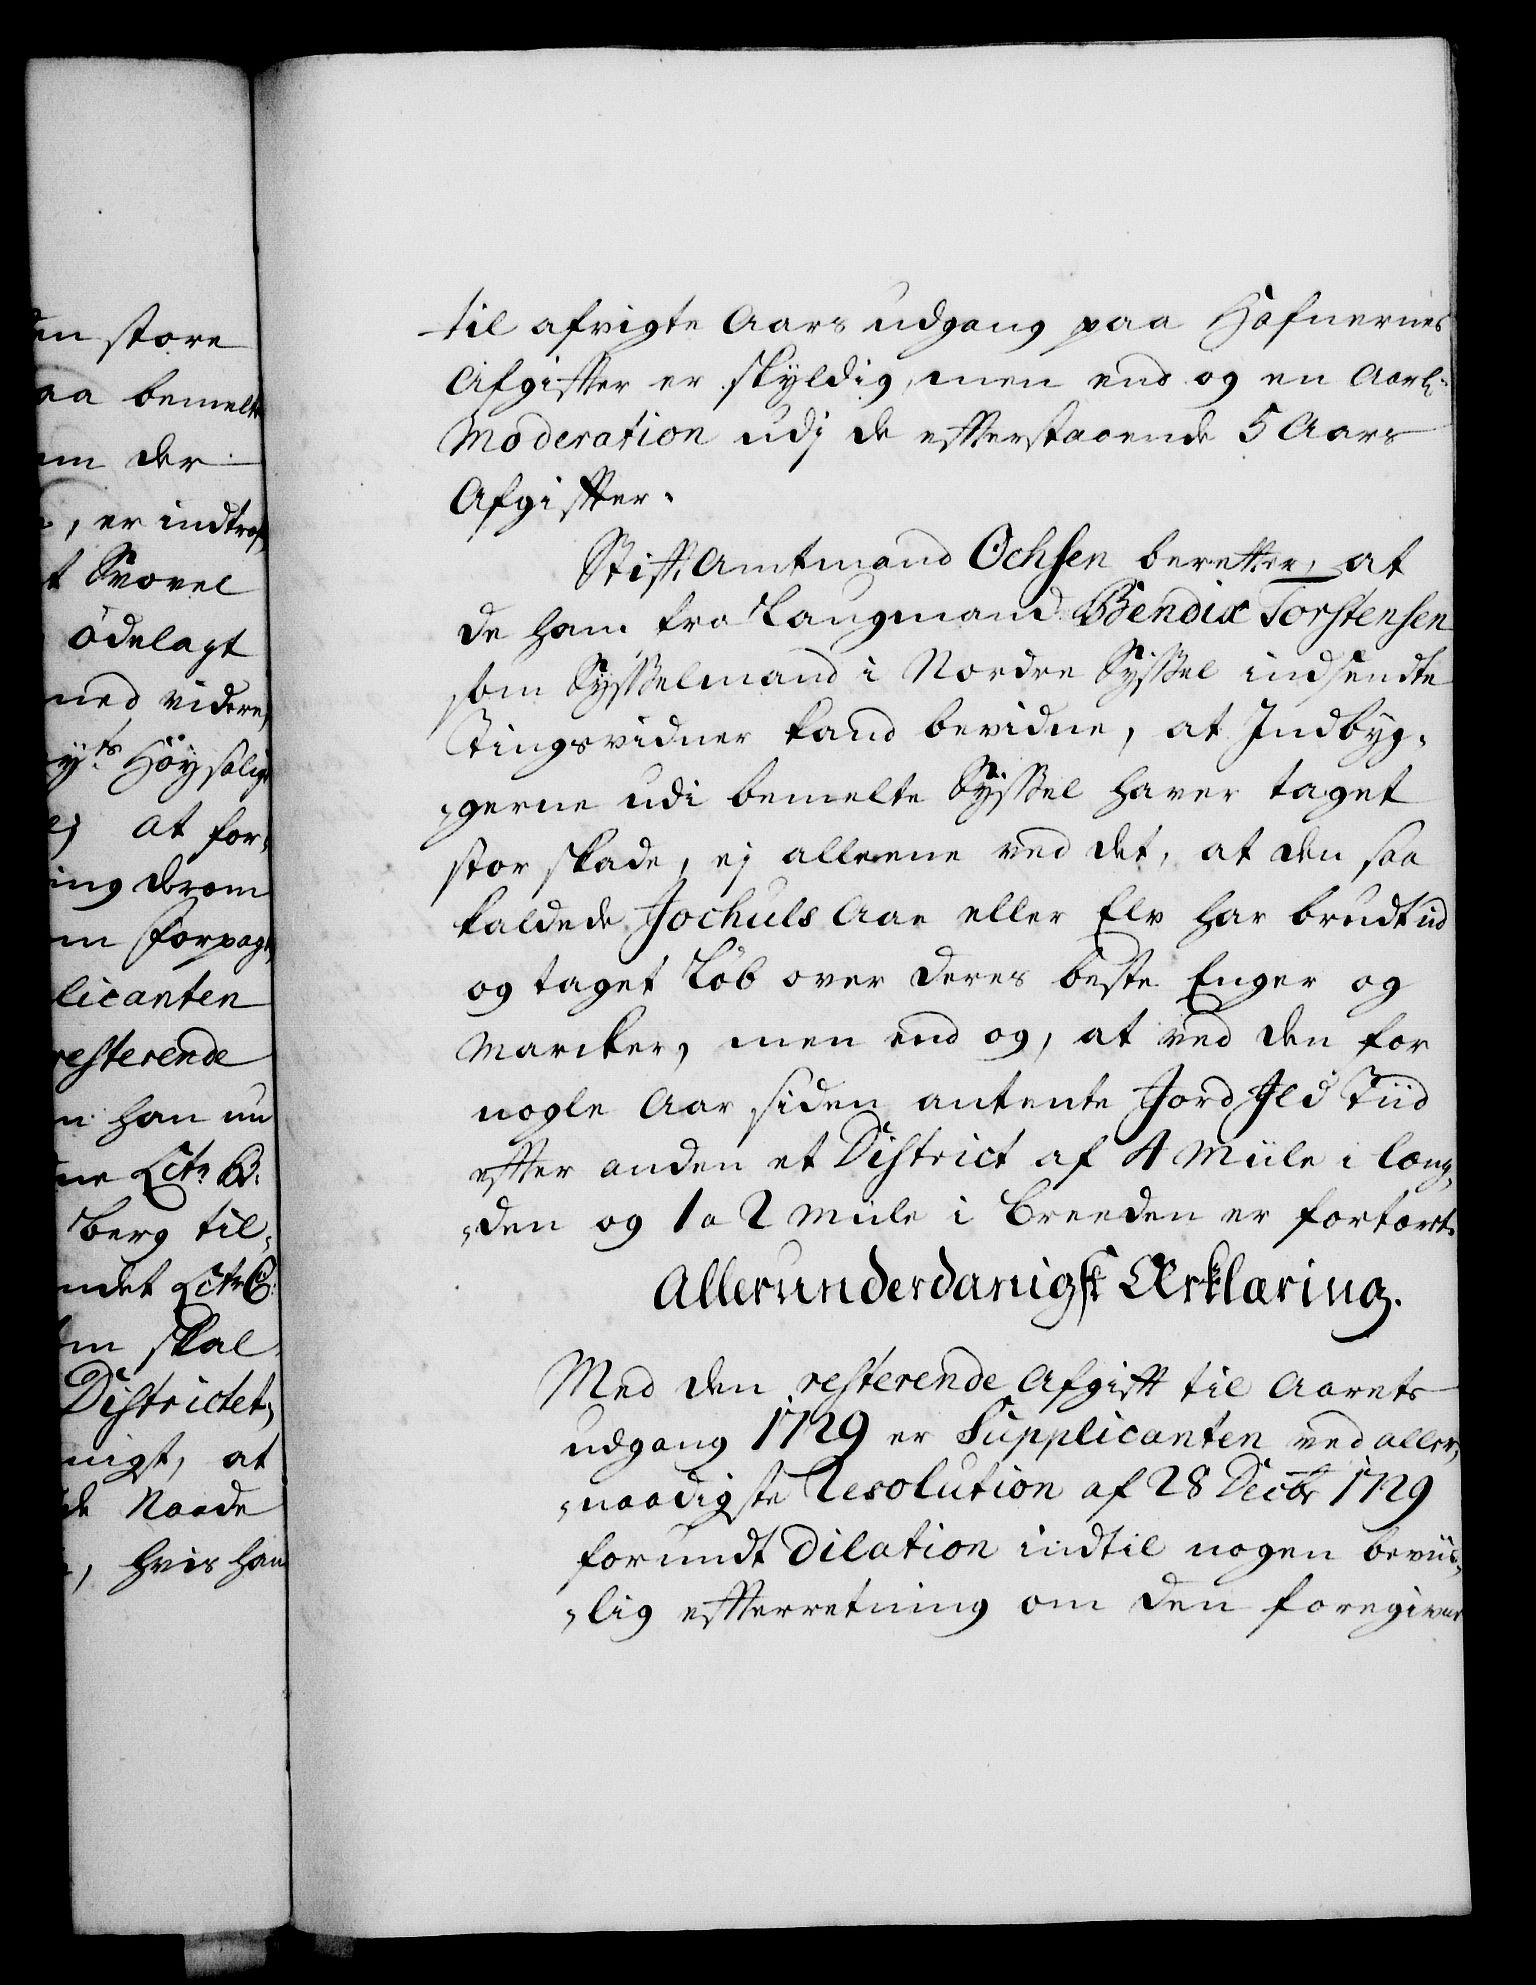 en store
aa bemelte
om der
, er indtraf,
t Svovel
ödelagt
med videre,
yts Höysalig
ej at for,
ing derom
m Forpagt,
licanten
resterende
n han nu
ne Litr. B.
berg til,
ndet Litr C.
om skal
Districtet,
nigst, at
de Naade
, hvis han
til afvigte Aars udgang paa Hafnernes
Afgifter er skyldig, men end og en Aarl:
Moderation udj de efterstaaende 5 Aars
Afgifter.
Stift Amtmand Ochsen beretter, at
de ham fra Laugmand Bendix Torstensen
som Sysselmand i Nordre Syssel indsendte
Tingsvidner kand bevidne, at Indbyg,
,gerne udi bemelte Syssel haver taget
stor skade, ej alleene ved det, at den saa
kaldede Jochuls Aae eller Elv har brudt ud
og taget Löb over deres beste Enger og
Marcker, men end og, at ved den for
nogle Aar siden antente Jord Ild Tiid
efter anden et District af 4 Miile i Læng,
,den og 1 a 2 Miile i Breeden er fortært.
Allerunderdanigst Erklæring.
Med den resterende Afgift til Aarets
udgang 1729 er Supplicanten ved aller,
,naadigste Resolution af 28 Decbr 1729
forundt Dilation indtil nogen beviis,
,lig efterretning om den foregivne